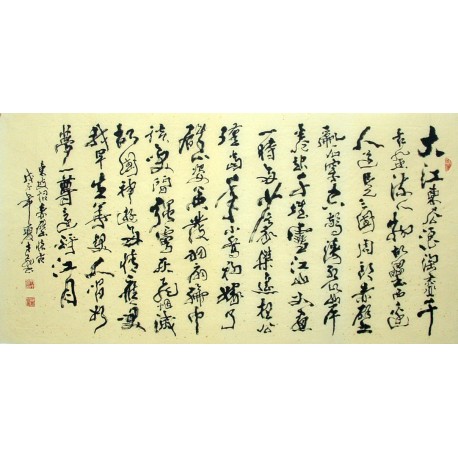 大江東去浪淘盡千
古風流人物故壘西邊
人道是三國周郎赤壁
亂石穿空驚濤岸
卷起千堆雪江山如畫
一時多少豪傑遙想公
瑾當年小喬初嫁了
雄姿英發羽扇綸巾
談笑間檣櫓灰飛煙滅
故國神遊多情應笑
我早生華髮人間如
夢一尊還酹江月
東坡詞赤壁懷古
戊子年